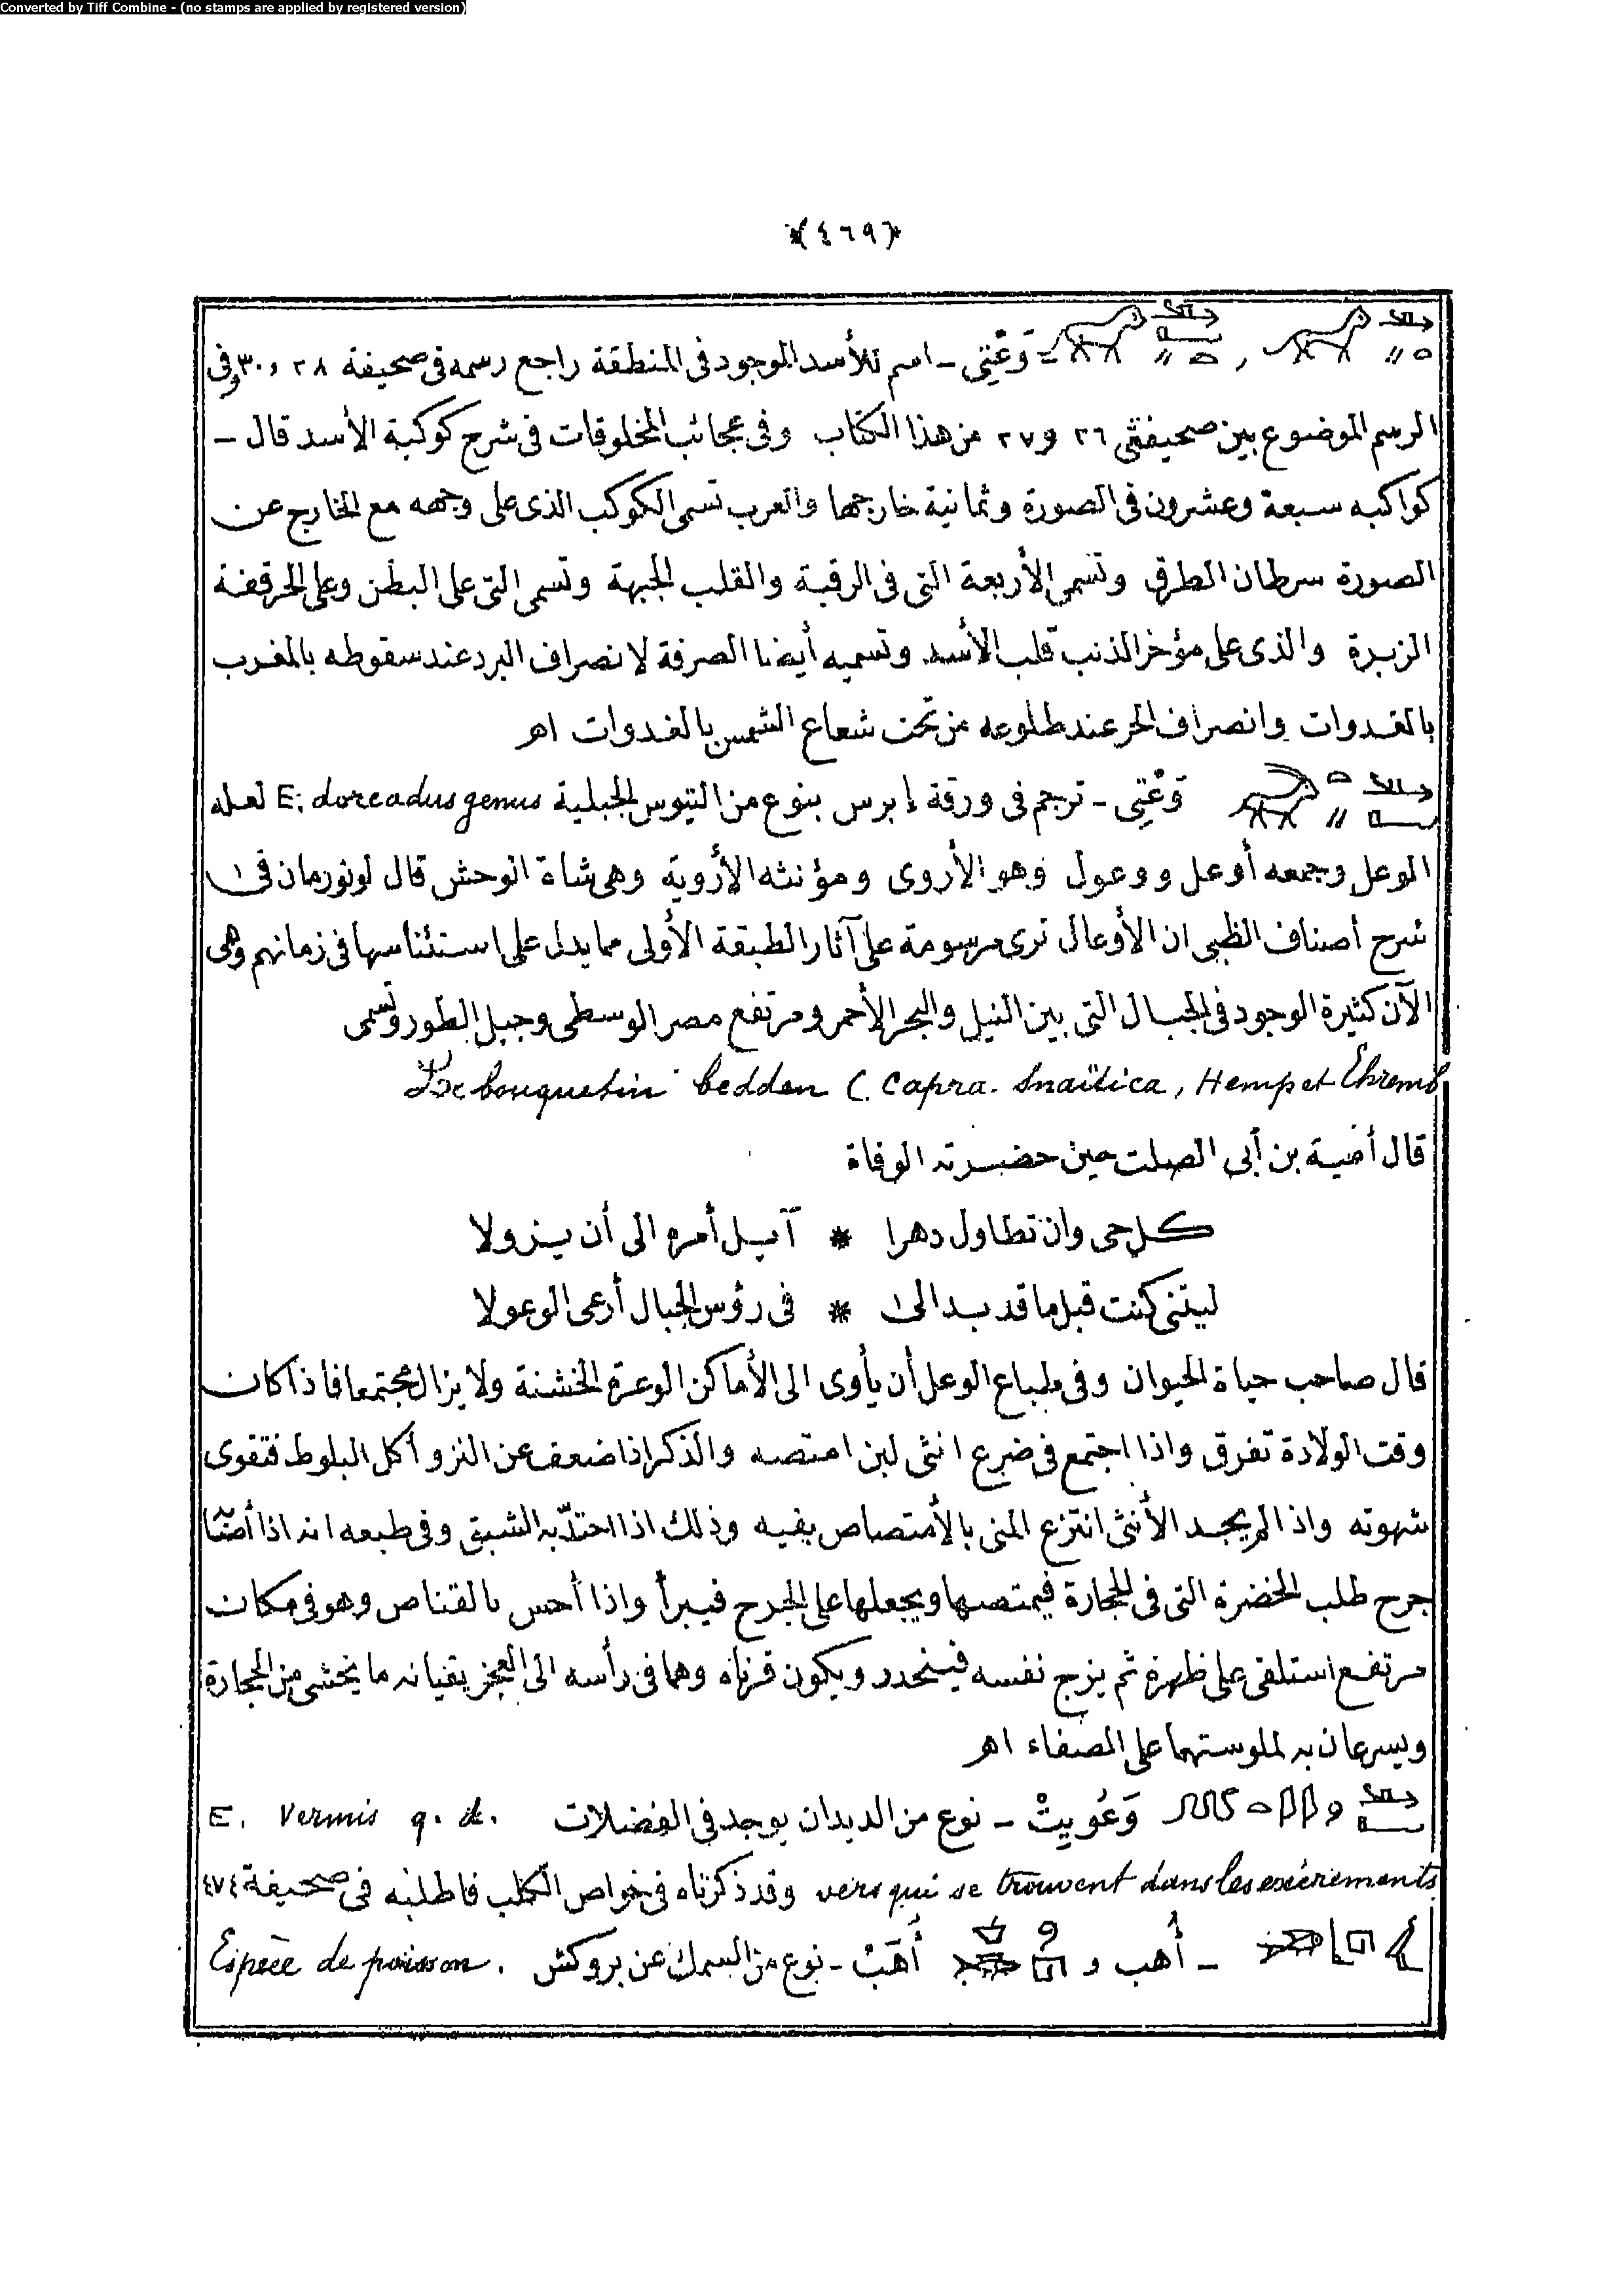 Converted by Tiff Combine - (no stamps are applied by registered version)
*(٤٦٩)*
، = وَعْتِى ـ اسم للأسد الموجود فى المنطقة راجع رسمه فى صحيفة ٢٨ و ٣٠ وفى
الرسم الموضوع بين صحيفتى ٢٦ و ٢٧ من هذا الكتاب وفى عجائب المخلوقات فى شرح كوكبة الأسد قال ـ
كواكبه سبعة وعشرون فى الصورة وثمانية خارجها والعرب تسمى الكوكب الذى على وجهه مع الخارج عن
الصورة سرطان الطرف وتسمى الأربعة التى فى الرقبة والقلب الجبهة وتسمى التى على البطن وعلى الحرقفة
الزبرة والذى على مؤخر الذنب قلب الأسد وتسميه أيضا الصرفة لانصراف البرد عند سقوطه بالمغرب
بالغدوات وانصراف الحر عند طلوعه من تحت شعاع الشمس بالغدوات اهـ
وَعْتِى ـ ترجم فى ورقة إبرس بنوع من التيوس الجبلية E; dorcadus genus لعله
الوعل وجمعه أوعل ووعول وهو الأروى ومؤنثه الأروية وهى شاة الوحش قال لونورمان فى
شرح أصناف الظبى ان الأوعال ترى مرسومة على آثار الطبقة الأولى مما يدل على استئناسها فى زمانهم وهى
الآن كثيرة الوجود فى الجبال التى بين النيل والبحر الأحمر ومرتفع مصر الوسطى وجبل الطور وتسمى
Le bouquetin bedden (. Capra. Snaïtica, Hemp et Ehremb
قال أمية بن أبى الصلت حين حضرته الوفاة
كل حى وان تطاول دهرا * آيل أمره الى أن يزولا
ليتنى كنت قبل ما قد بدا لى * فى رؤس الجبال أرعى الوعولا
قال صاحب حياة الحيوان وفى طباع الوعل أن يأوى الى الأماكن الوعرة الخشنة ولا يزال مجتمعا فاذا كان
وقت الولادة تفرق واذا اجتمع فى ضرع انثى لبن امتصه والذكر اذا ضعف عن النزو أكل البلوط فتقوى
شهوته واذا لم يجد الأنثى انتزع المنى بالأمتصاص بفيه وذلك اذا احتدّ به الشبق وفى طبعه انه اذا أصابه
جرح طلب الخضرة التى فى الحجارة فيمتصها ويجعلها على الجرح فيبرأ واذا أحس بالقناص وهو فى مكان
مرتفع استلقى على ظهره ثم يزج نفسه فينحدر ويكون قرناه وهما فى رأسه الى العجز يقيانه ما يخشى من الحجارة
ويسرعان به لملوستهما على الصفاء اهـ
وَعُوِيتْ ـ نوع من الديدان يوجد فى الفضلات E. Vermis q. d.
vers qui se trouvent dans les excréments وقد ذكرناه فى خواص الكلب فاطلبه فى صحيفة ٤٧٤
ـ أهب و أَهَبْ ـ نوع من السمك عن بروكش . Espèce de poisson